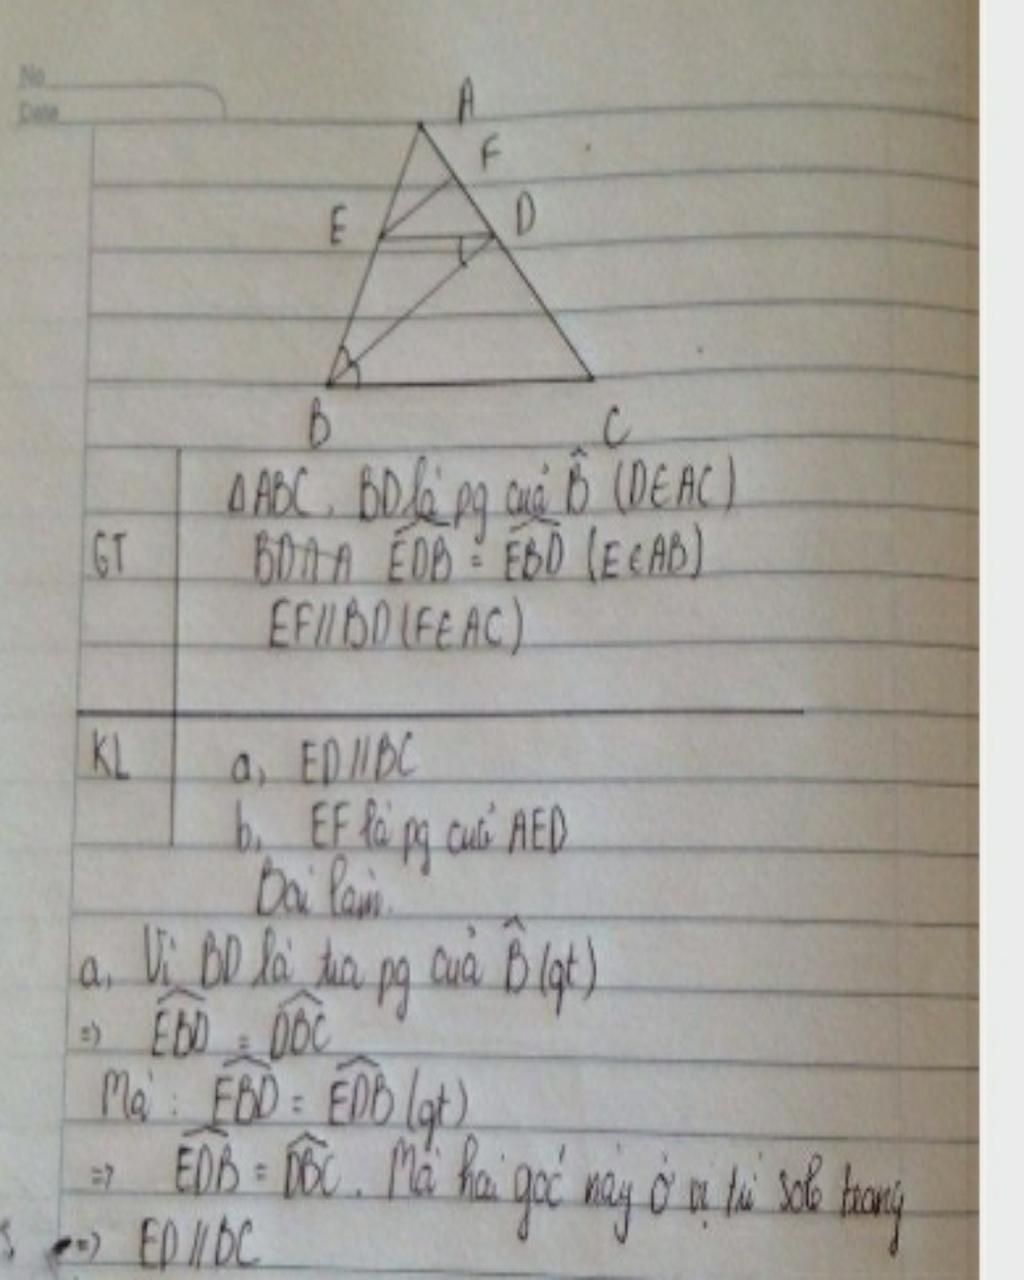 No
Date
A
F
E
D
B
C
ΔABC. BD là pg của B̂ (D∈AC)
GT
EDB̂ = EBD̂ (E∈AB)
EF//BD (F∈AC)
KL
a, ED//BC
b, EF là pg cuả AED
Bài làm.
a, Vì BD là tia pg của B̂ (gt)
=> EBD̂ = DBĈ
Mà : EBD̂ = EDB̂ (gt)
=> EDB̂ = DBĈ. Mà hai góc này ở vị trí sole trong
=> ED//BC